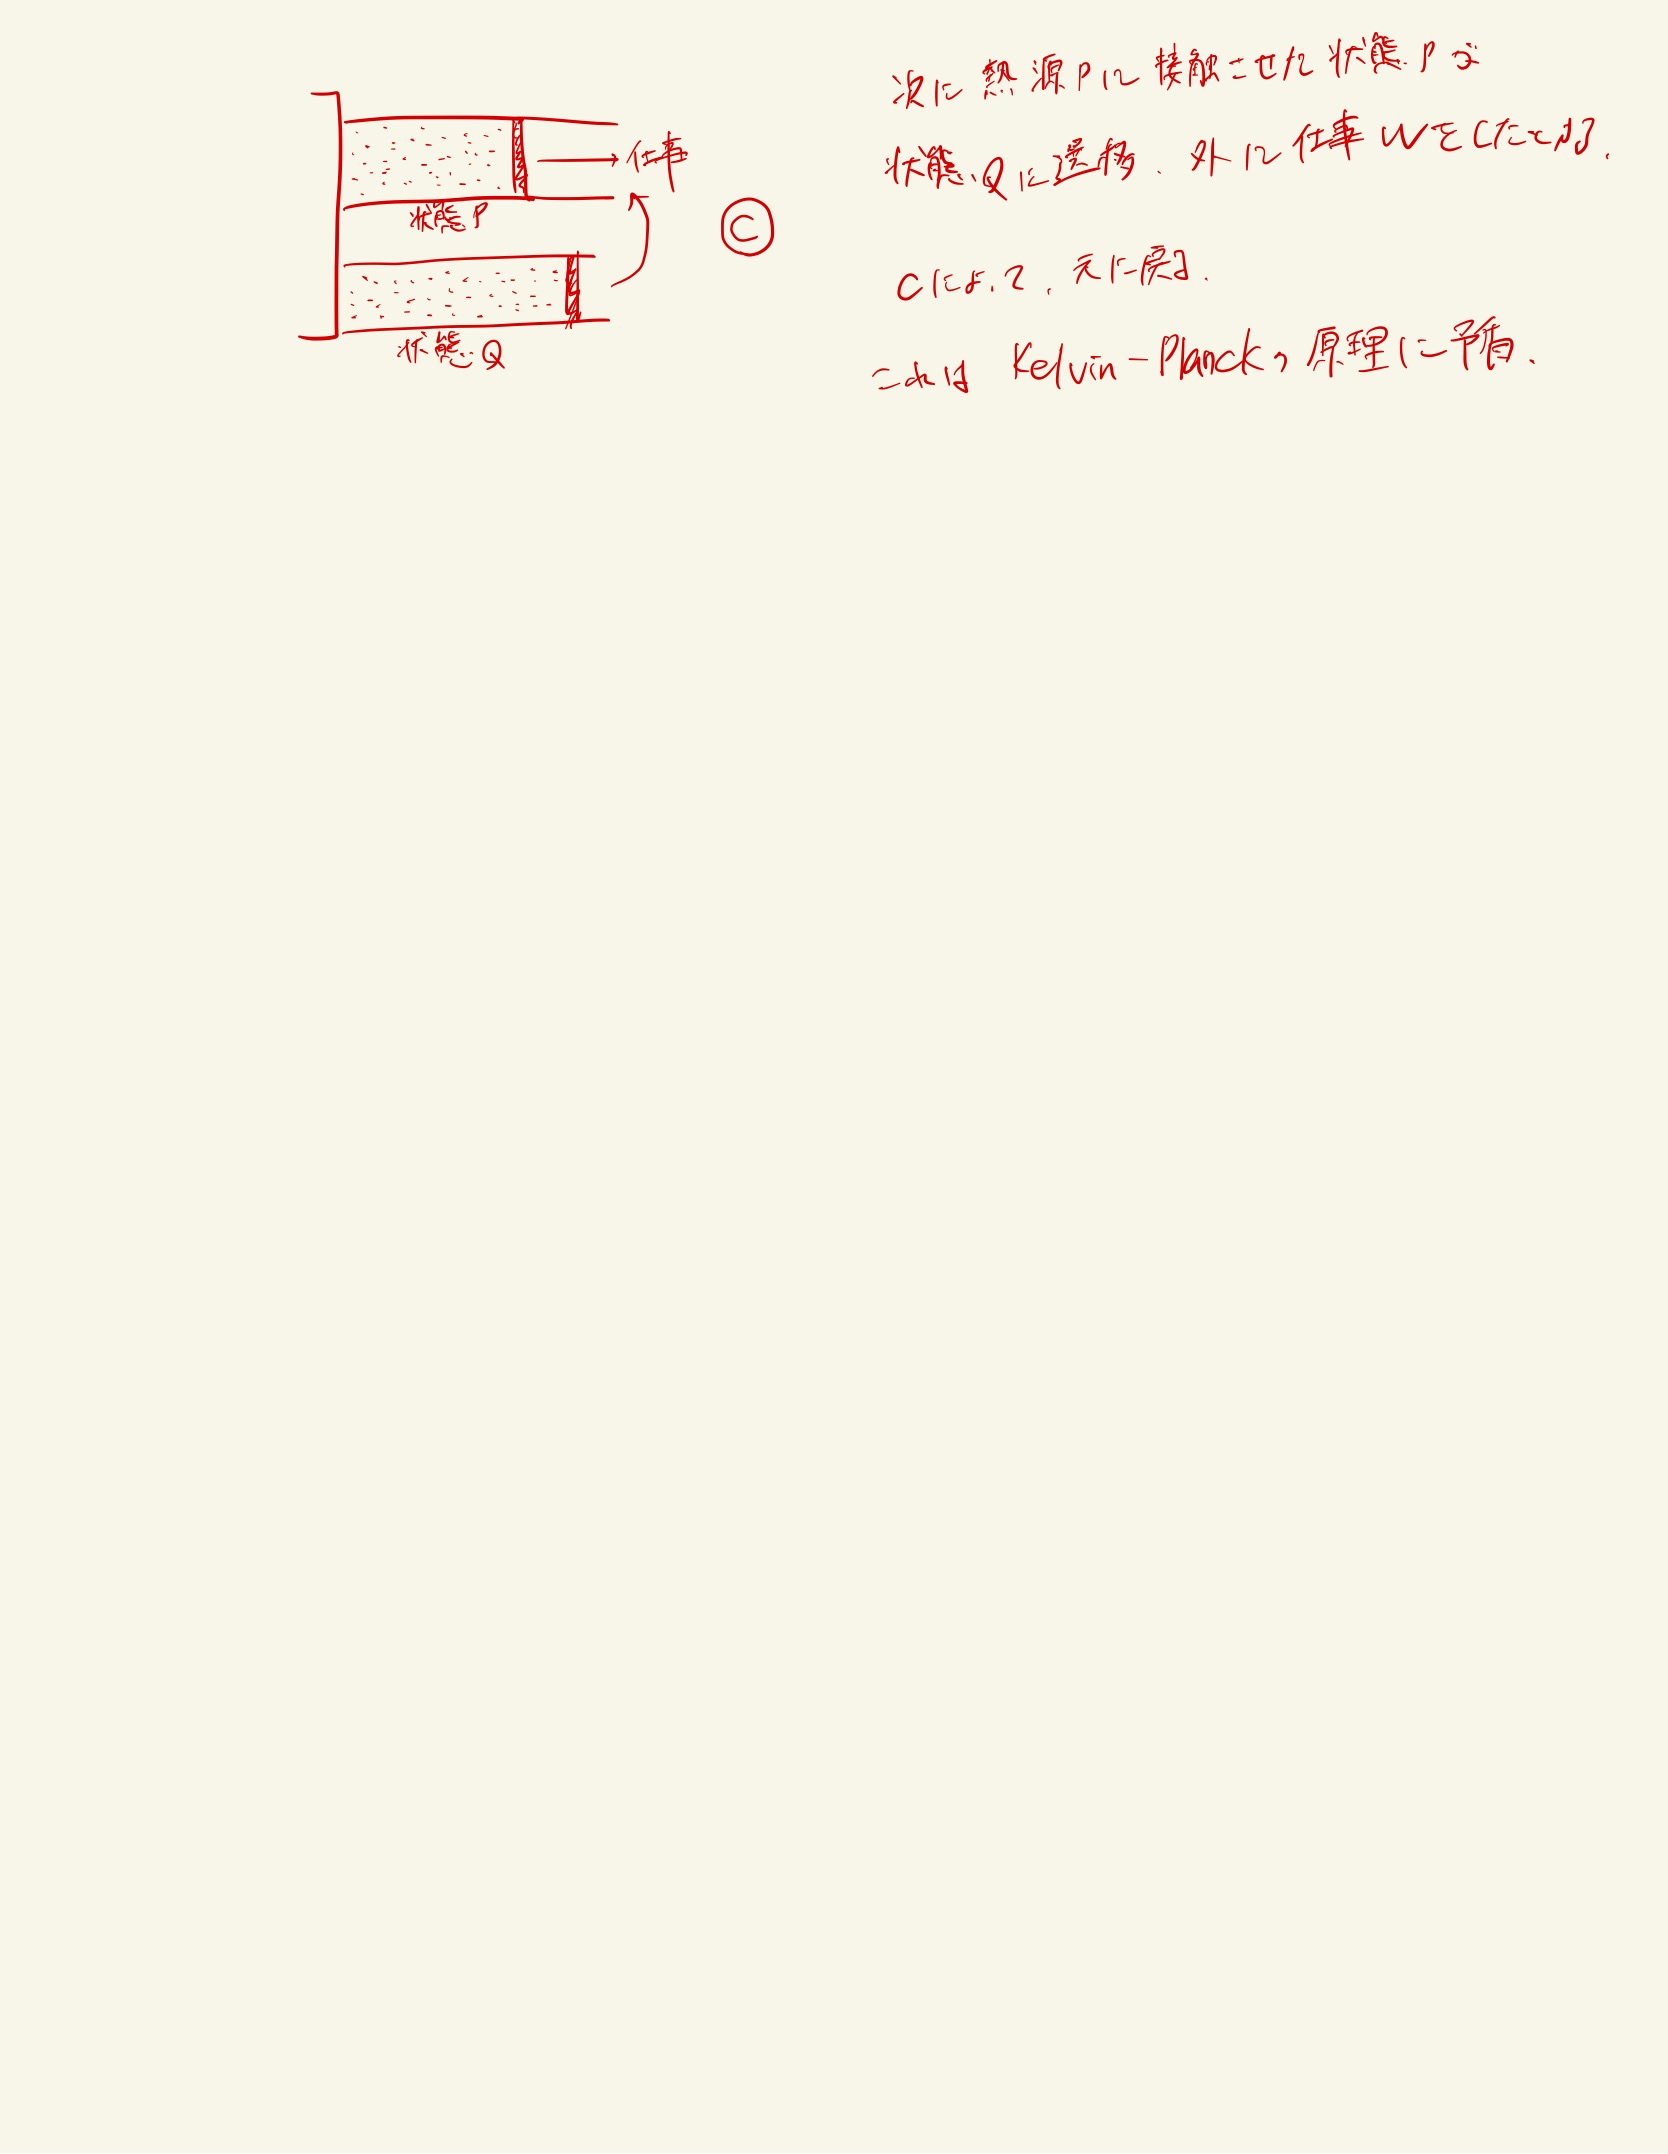 仕事
状態P
状態Q
C
次に熱源Pに接触させた状態Pが
状態Qに遷移、外に仕事WをしたとすS.
Cによって、元に戻る.
これは Kelvin-Planckの原理に矛盾.